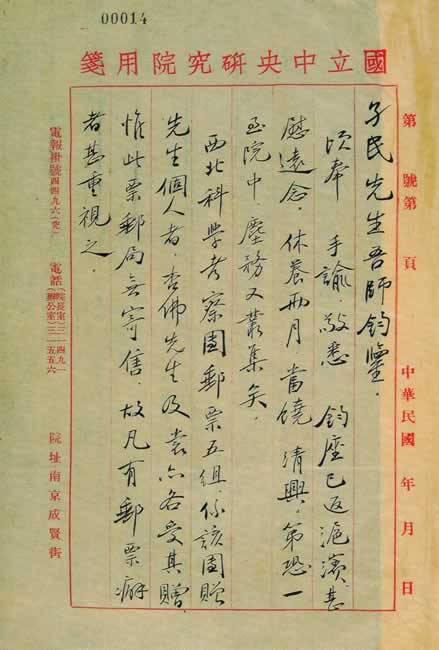 00014
國立中央研究院用箋
第 號第 頁 中華民國 年 月 日
子民先生吾師鈞鑒.
頃奉 手諭.敬悉 鈞座已返滬濱甚
慰遠念.休養兩月.當饒 清興.第恐一
至院中塵務又叢集矣.
西北科學考察團郵票五組.係該團贈
先生個人者.杏佛先生及裳亦各受其贈
惟此票郵局無寄售.故凡有郵票癖
者甚重視之.
電報掛號 四四九六 電話 (院長室)三一四九一 (辦公室)三二一五五六 院址南京成賢街